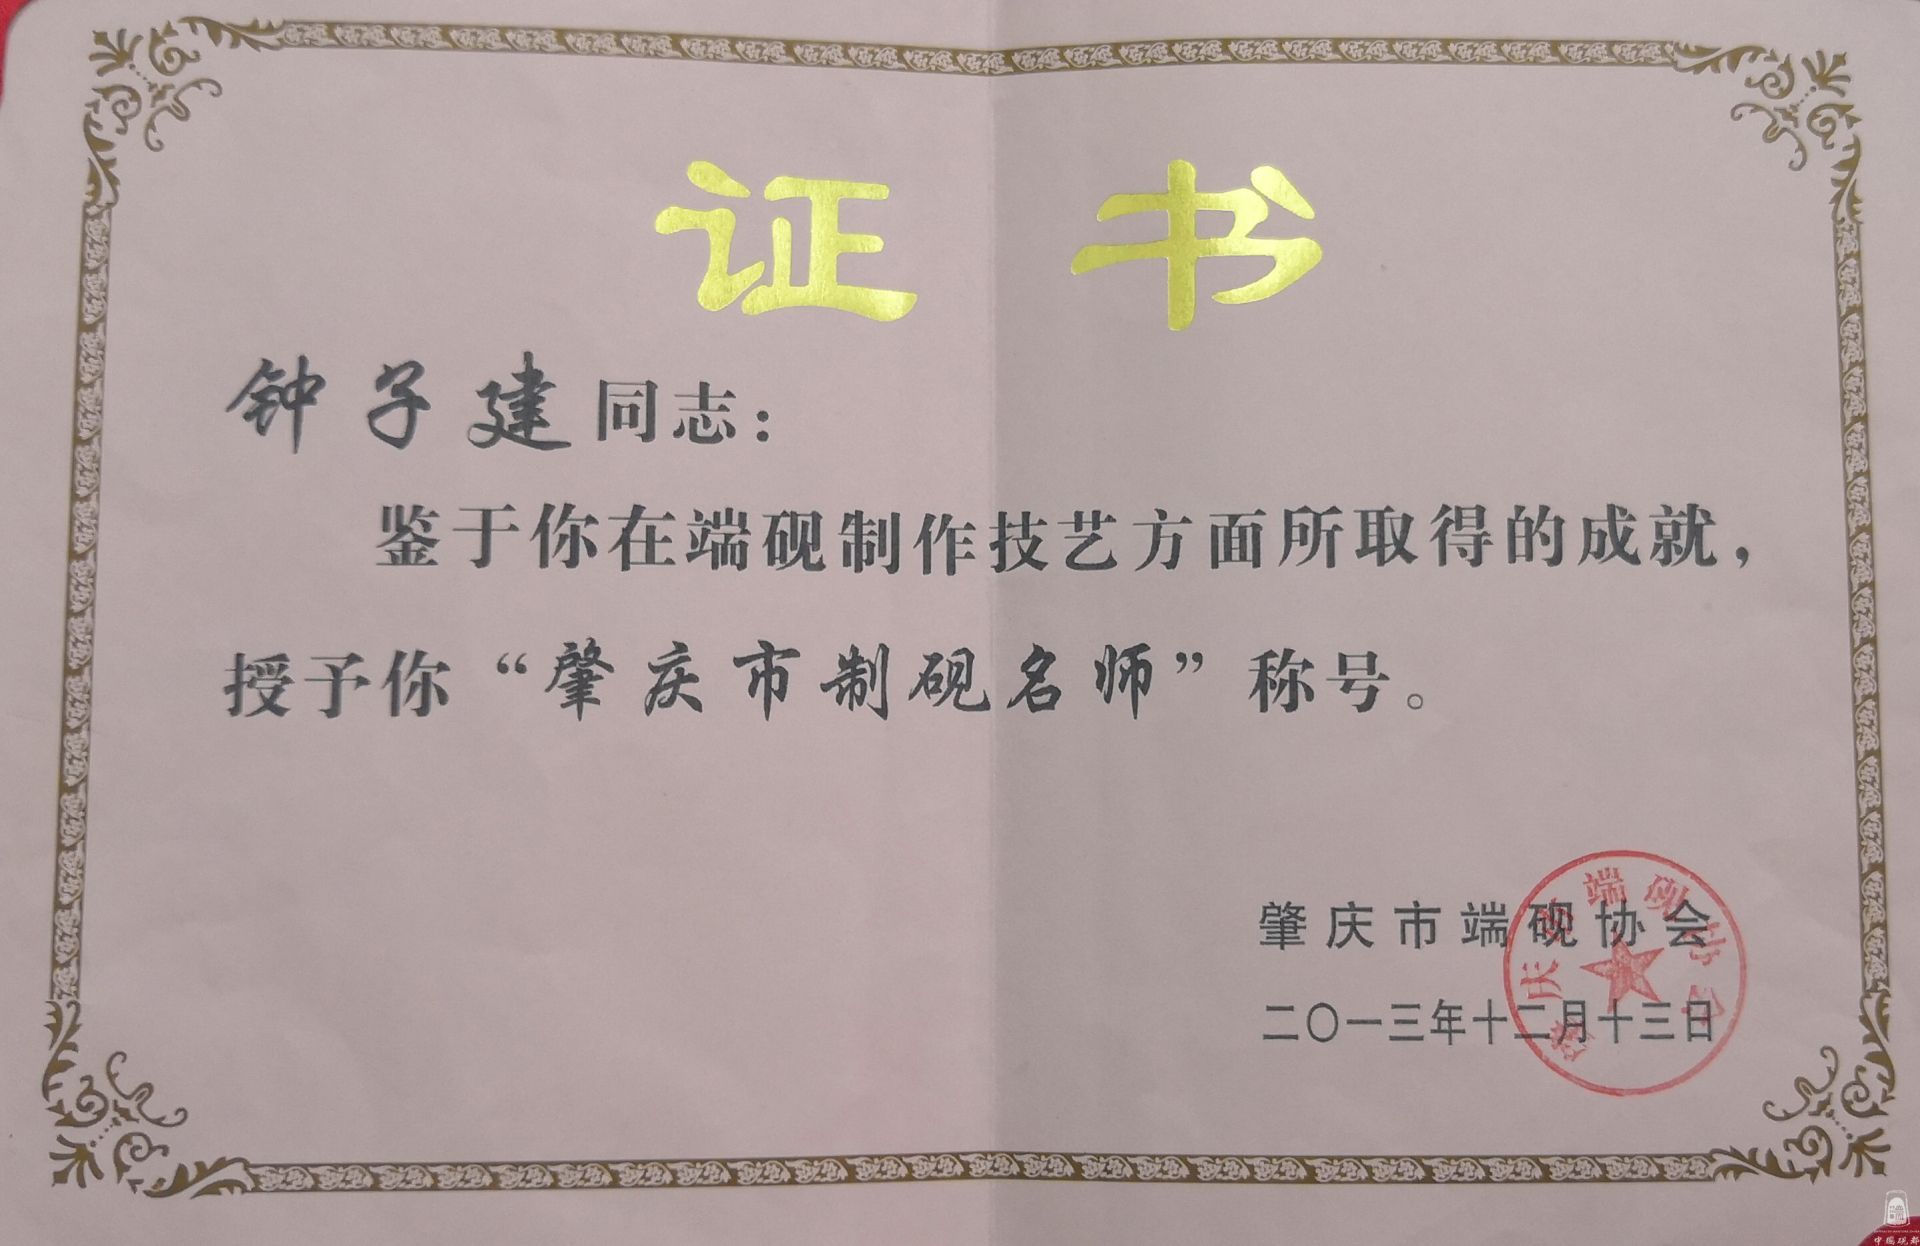 证书
钟子建同志：
鉴于你在端砚制作技艺方面所取得的成就，
授予你“肇庆市制砚名师”称号。
肇庆市端砚协会
二〇一三年十二月十三日
肇庆市端砚协会
中国砚都